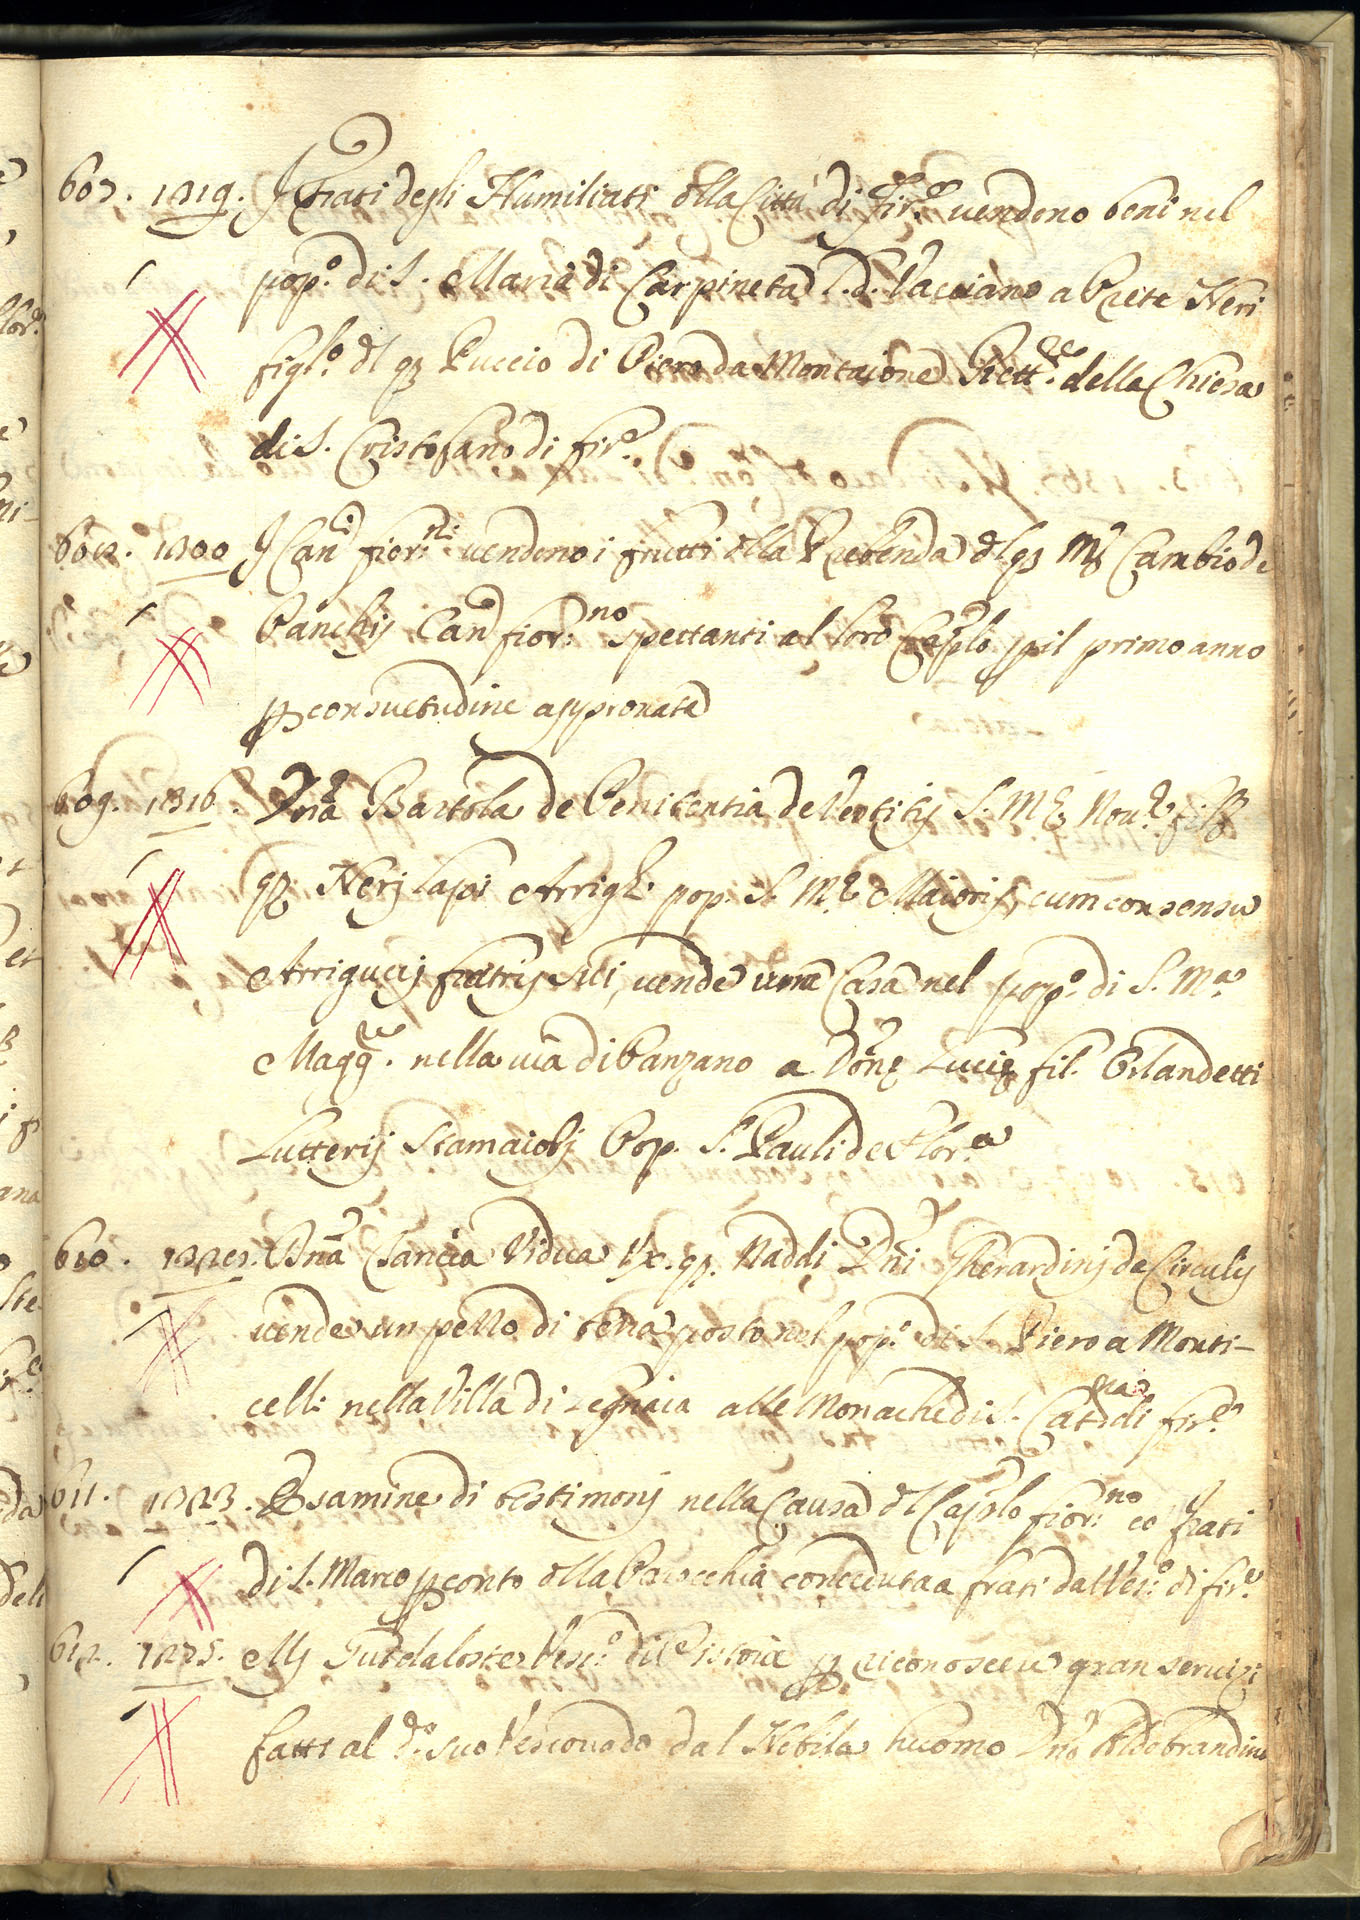 607. 1319. I Frati degli Humiliati dlla Città di Fir.e vendono beni nel
pop.o di S. Maria di Carpineta l. d. Vacciano a Prete Neri
figl.o dl q Puccio di Piero da Montaione Rett.re della Chiesa
di S. Cristofano di fir.e
608. 1300 I Can.ci fior.ni vendono i frutti dlla Prebenda dl q M.r Cambio de
Panchij Can.co fior:no spettanti al loro Cap.lo p il primo anno
p consuetudine approuata
609. 1316. Dña Bartola de Penitentia de Vestitis S. M.e Nou.e fil.
q Nerj Lapi Arrigh. pop. S. M.e Maioris, cum consensu
Arrigucij fratris sui, vende una Casa nel pop.o di S. M.a
Magg.re nella via di Panzano a Dōne Lucie fil. Orlandetti
Lutterij Stamaiolj Pop. S. Pauli de Flor.a
610. Dña Chancia Vidua Vx. q. Naddi Dñi Gherardinj de Circulis
vende un pezzo di terra posto nel pop.o di S. Piero a Monti-
celli nella Villa di Legnaia alle Monache di S. Cat.rina di fir.e
611. 1323. Esamine di testimonj nella Causa dl Cap.lo fior:no co Frati
di S. Marco p conto dlla Parocchia conceduta a frati dal Ves.o di fir.e
612. 1275. M.s Guidaloste Vesc.o di Pistoia p riconoscere gran seruizi
fatti al d.o suo Vescouado dal Nobile huomo Dño Aldobrandino